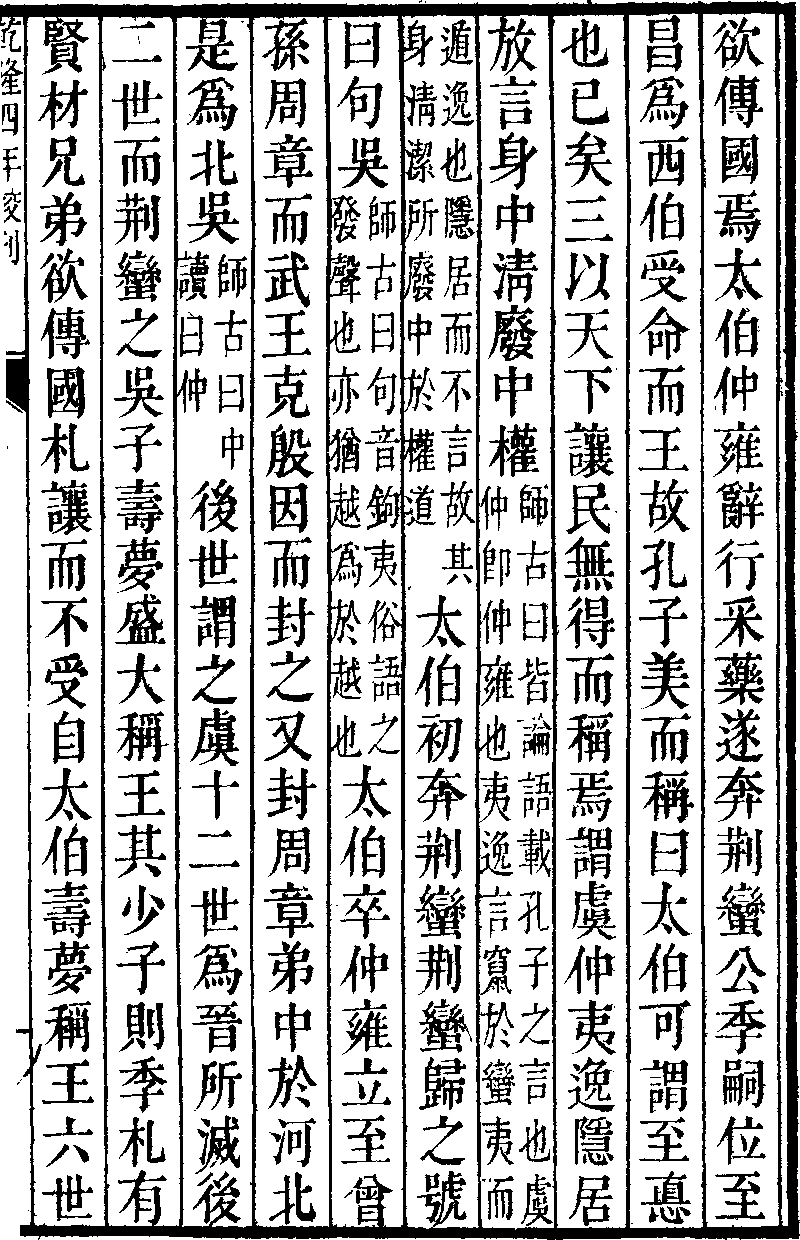 欲傳國焉太伯仲雍辭行采藥遂奔荆蠻公季嗣位至
昌爲西伯受命而王故孔子美而稱曰太伯可謂至悳
也已矣三以天下讓民無得而稱焉謂虞仲夷逸隱居
放言身中淸廢中權師古曰皆論語載孔子之言也虞仲卽仲雍也夷逸言竄於蠻夷而
遁逸也隱居而不言故其身淸潔所廢中於權道太伯初奔荆蠻荆蠻歸之號
曰句吳師古曰句音鉤夷俗語之發聲也亦猶越爲於越也太伯卒仲雍立至曾
孫周章而武王克殷因而封之又封周章弟中於河北
是爲北吳師古曰中讀曰仲後世謂之虞十二世爲晉所滅後
二世而荆蠻之吳子壽夢盛大稱王其少子則季札有
賢材兄弟欲傳國札讓而不受自太伯壽夢稱王六世
乾隆四年校刊